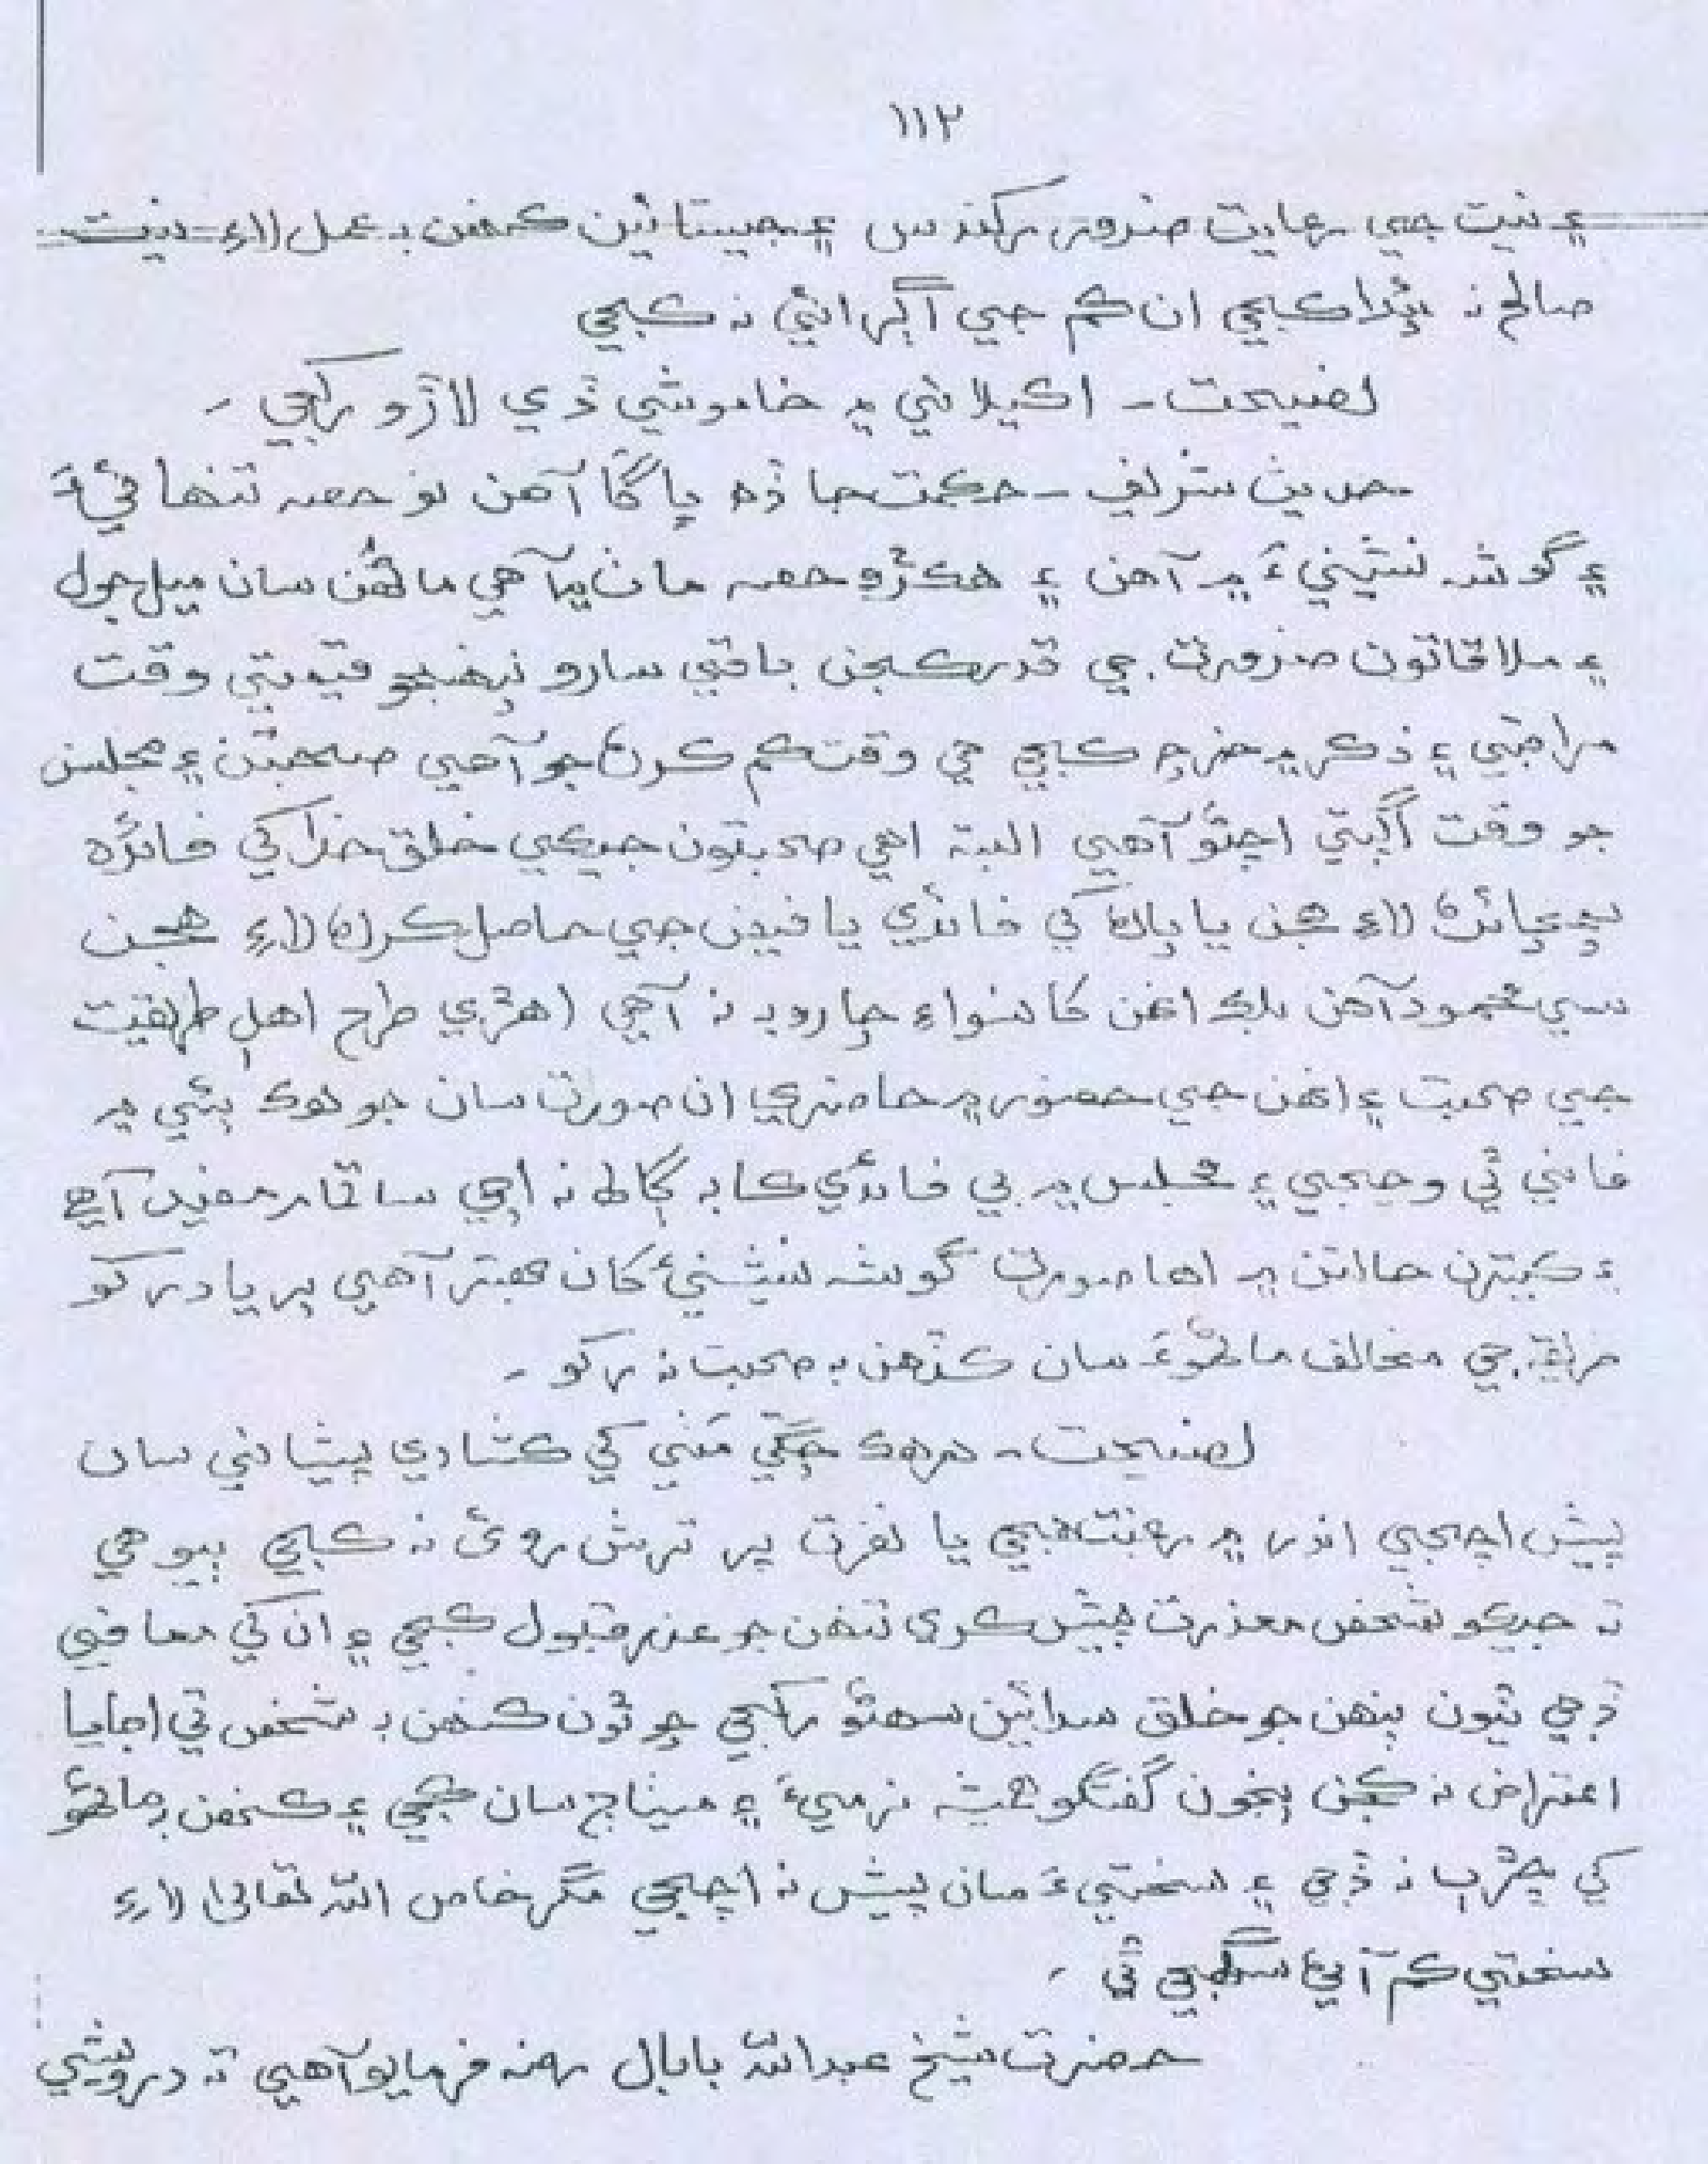 ۱۱۲
۽ نيت جي رعايت ضرور رکندس ۽ جيستائين ڪنهن به عمل لاءِ نيت
صالح نه پيدا ڪبجي ان ڪم جي آڳرائي نه ڪبجي
نصيحت - اڪيلائي ۾ خاموشي ڏي لاڙو رکجي -
حديث شريف - حڪمت جا ڏه ڀاڱا آهن نو حصه تنهائيءَ
۽ گوشه نشينيءَ ۾ آهن ۽ هڪڙو حصه مانٺ ۾ آهي ماڻهن سان ميل جول
۽ ملاقاتون ضرورت جي قدر ڪجن باقي سارو پنهنجو قيمتي وقت
مراقبي ۽ ذڪر ۾ خرچ ڪبجي هي وقت ڪم ڪرڻ جو آهي صحبتن ۽ مجلسن
جو وقت اڳتي اچڻو آهي البته اهي صحبتون جيڪي خلق خدا کي فائده
پهچائڻ لاءِ هجن يا پاڻ کي فائدي يا فيض جي حاصل ڪرڻ لاءِ هجن
سي محمود آهن بلڪ انهن کا سواءِ چارو به نه آهي اهڙي طرح اهلِ طريقت
جي صحبت ۽ انهن جي حضور ۾ حاضري ان صورت سان جو هڪ ٻئي ۾
فاني ٿي وڃجي ۽ مجلس ۾ بي فائدي ڪا به ڳالھ نه اچي سا تمام مفيد آهي
۽ ڪيترن حالتن ۾ اها صورت گوشه نشينيءَ کان بهتر آهي پر ياد رکو
طريقه جي مخالف ماڻهوءَ سان ڪڏهن به صحبت نه رکو -
نصيحت - هرهڪ چڱي مٺي کي ڪشادي پيشاني سان
پيش اچجي اندر ۾ رغبت هجي يا نفرت پر ترش روئي نه ڪبجي ٻيو هي
ته جيڪو شخص معذرت پيش ڪري تنهن جو عذر قبول ڪبجي ۽ ان کي معافي
ڏجي ٽيون پنهن جو خلق سدائين سهڻو رکجي چوٿون ڪنهن به شخص تي اجايا
اعتراض نه ڪجن پنجون گفتگو هميشه نرميءَ ۽ ميناج سان ڪجي ۽ ڪنهن به ماڻهو
کي ڇڙٻ نه ڏجي ۽ سختيءَ سان پيش نه اچجي مگر خاص الله تعاليٰ لاءِ
سختي ڪم آڻي سگهجي ٿي -
حضرت شيخ عبدالله بابال رحه فرمايو آهي ته درويشي